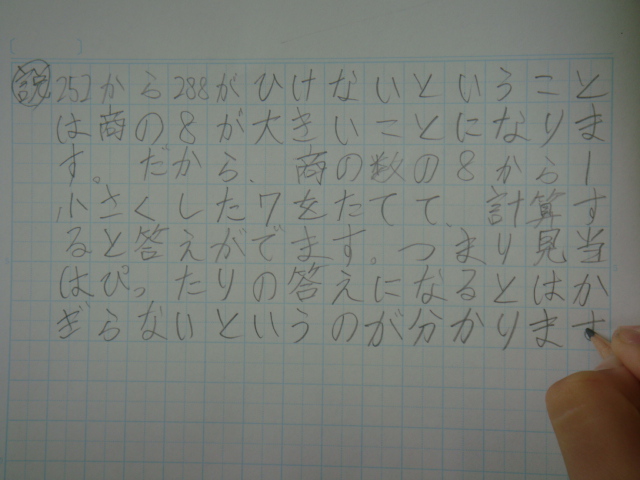 説 252から288がひけないということ
は商の8が大きいことになりま
す。だから、商の数の8から1
小さくした7をたてて、計算す
ると答えがでます。つまり見当
はぴったりの答えになるとはか
ぎらないというのが分かります